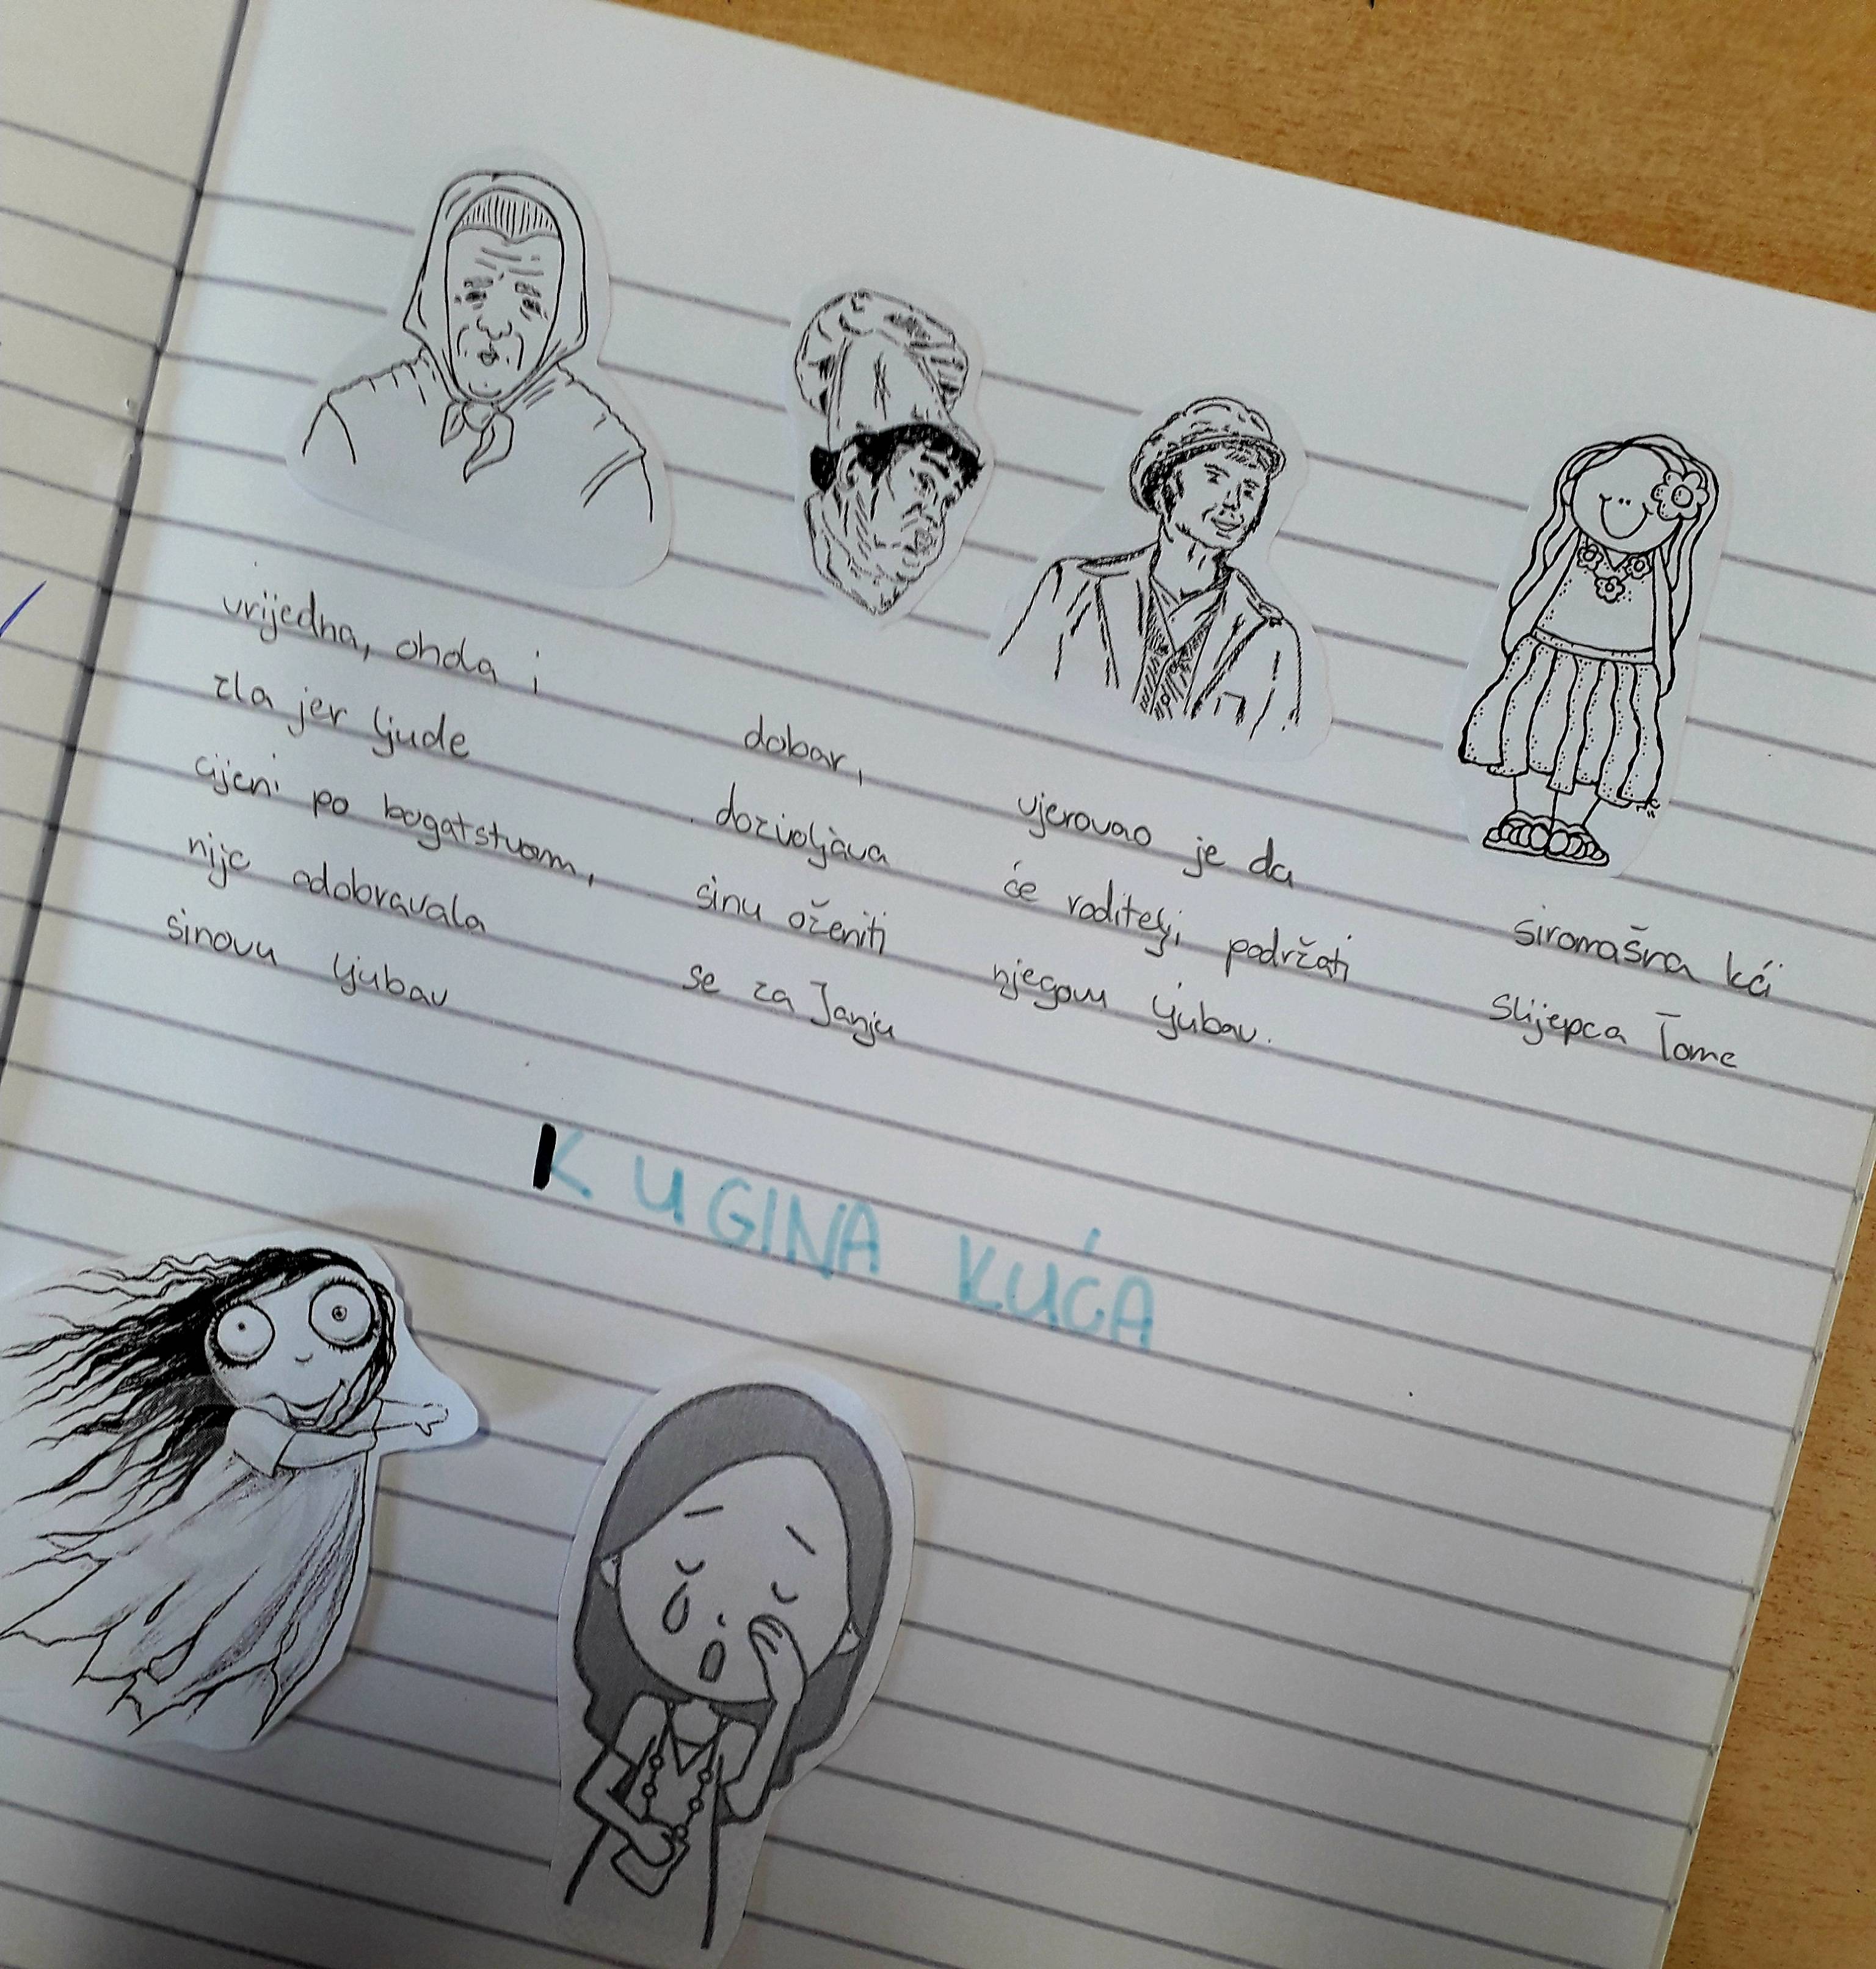 vrijedna, ohola i
zla jer ljude
cijeni po bogatstvom,
nije odobravala
sinovu ljubav
dobar,
dozvoljava
sinu oženiti
se za Janju
vjerovao je da
će roditelji podržati
njegovu ljubav.
siromašna kći
slijepca Tome
KUGINA KUĆA